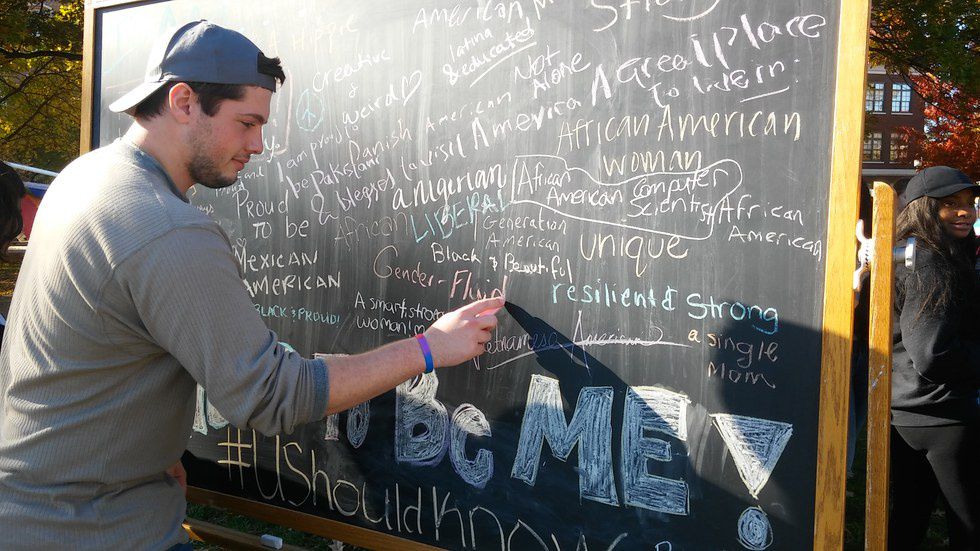 American
Strong
Hippie
creative
&
weird ♡
latina
& educated
Not
Alone
A Great Place
to live in:
I am proud to
be Pakistani
& blessed
Danish American
America
African American
woman
Proud
to be
Mexican
American
BLACK & PROUD!
a nigerian
African
LIBERAL
Generation
American
African
American Computer
Scientist
African
American
unique
Black & Beautiful
Gender-Fluid
resilient & Strong
A smart, strong
woman!
Vietnamese American
a single
Mom
To Be ME!
#UShouldKnow